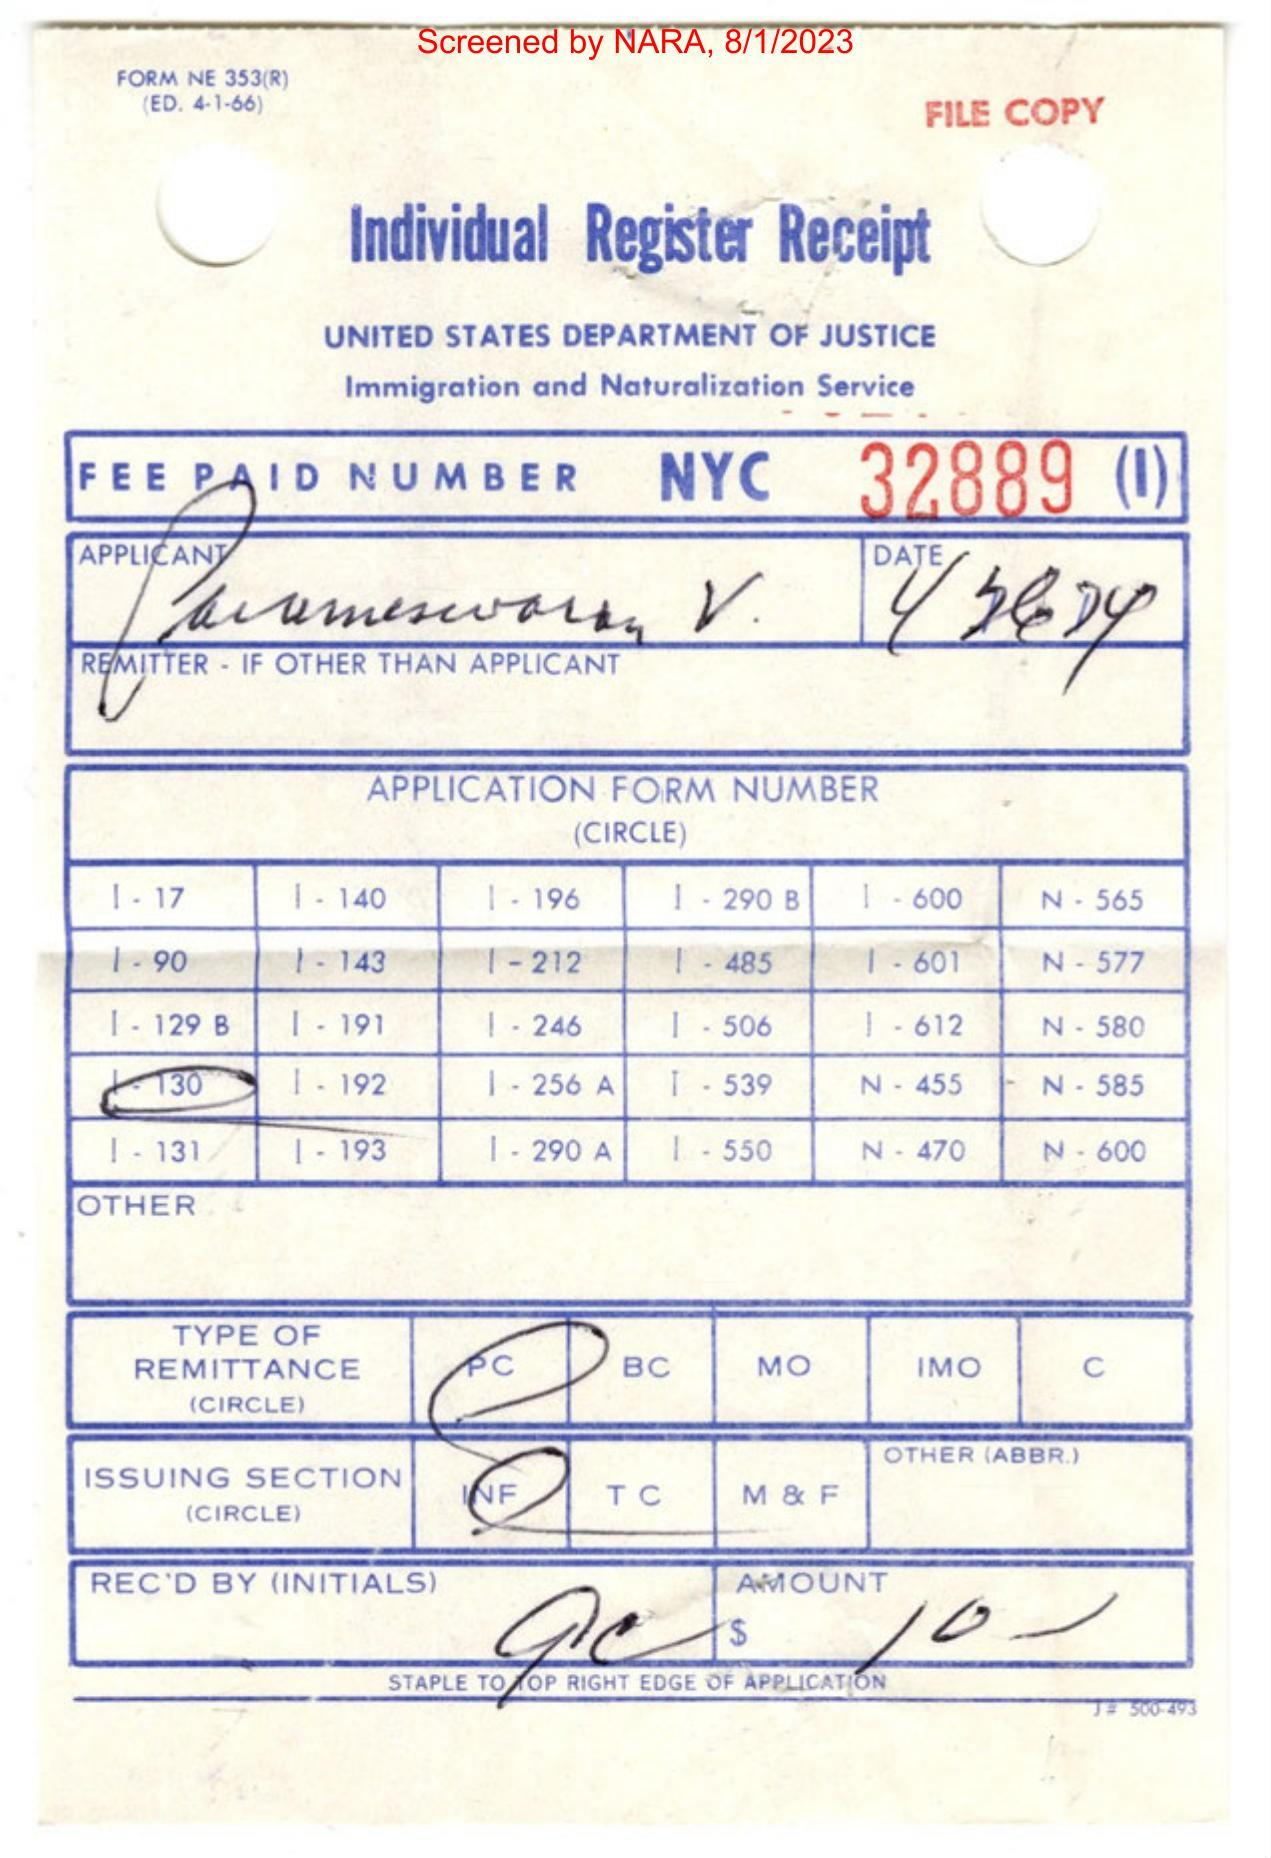 Screened by NARA, 8/1/2023
FORM NE 353(R)
(ED. 4-1-66)
FILE COPY
Individual Register Receipt
UNITED STATES DEPARTMENT OF JUSTICE
Immigration and Naturalization Service
FEE PAID NUMBER NYC 32889 (I)
APPLICANT DATE
Parameswaran V. 4
REMITTER - IF OTHER THAN APPLICANT
APPLICATION FORM NUMBER
(CIRCLE)
I - 17 I - 140 I - 196 I - 290 B I - 600 N - 565
I - 90 I - 143 I - 212 I - 485 I - 601 N - 577
I - 129 B I - 191 I - 246 I - 506 I - 612 N - 580
I - 130 I - 192 I - 256 A I - 539 N - 455 N - 585
I - 131 I - 193 I - 290 A I - 550 N - 470 N - 600
OTHER
TYPE OF
REMITTANCE PC BC MO IMO C
(CIRCLE)
OTHER (ABBR.)
ISSUING SECTION INF T C M & F
(CIRCLE)
REC'D BY (INITIALS) AMOUNT
$ 10 -
STAPLE TO TOP RIGHT EDGE OF APPLICATION
J# 500-493